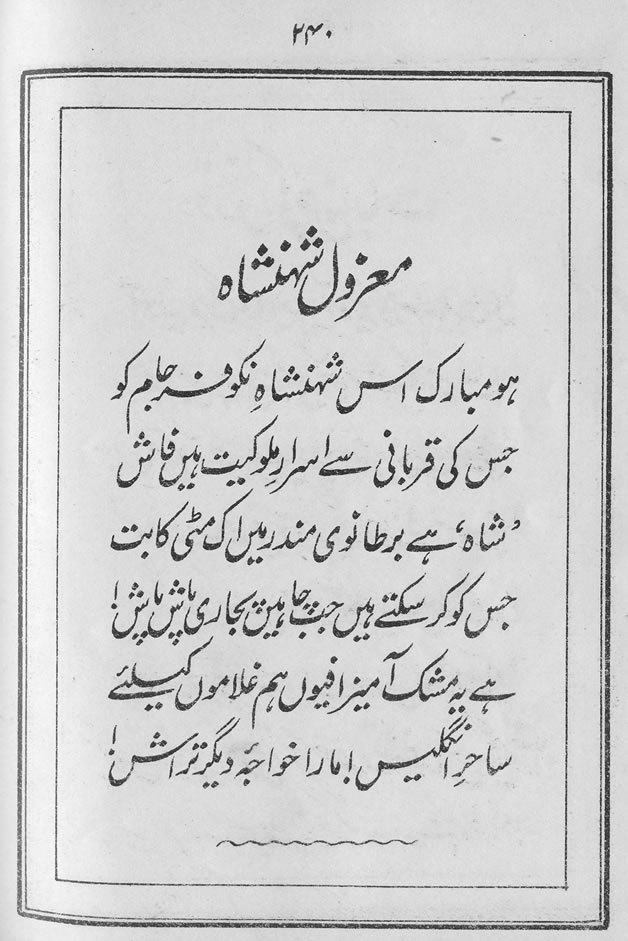 ۲۴۰
معزول شہنشاہ
ہو مبارک اس شہنشاہِ نکو فرجام کو
جس کی قربانی سے اسرارِ ملوکیت ہیں فاش
’شاہ‘ ہے برطانوی مندر میں اک مٹی کا بت
جس کو کر سکتے ہیں جب چاہیں پجاری پاش پاش!
ہے یہ مشک آمیز افیوں ہم غلاموں کیلئے
ساحرِ انگلیس! مارا خواجۂ دیگر تراش!